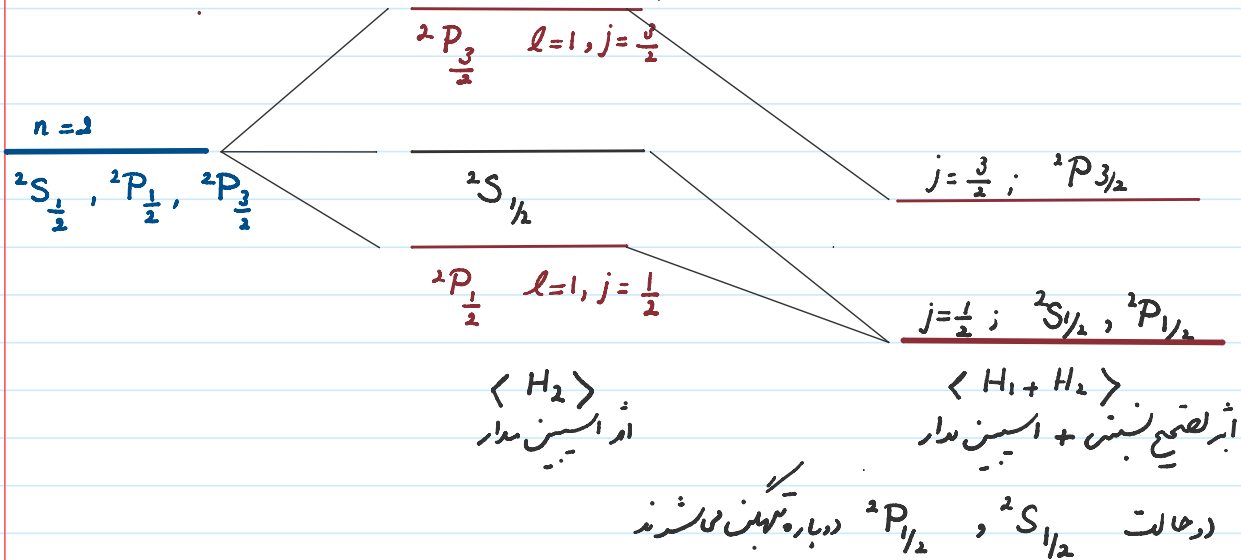 ²P_{3/2} l=1, j=3/2
n=2
²S_{1/2}, ²P_{1/2}, ²P_{3/2}
²S_{1/2}
j=3/2 ; ²P_{3/2}
²P_{1/2} l=1, j=1/2
j=1/2 ; ²S_{1/2}, ²P_{1/2}
⟨H₂⟩
⟨H₁ + H₂⟩
اثر اسپین مدار
اثر تصحیح نسبیتی + اسپین مدار
دو حالت ²S_{1/2} , ²P_{1/2} دوباره تبهگن می‌شوند